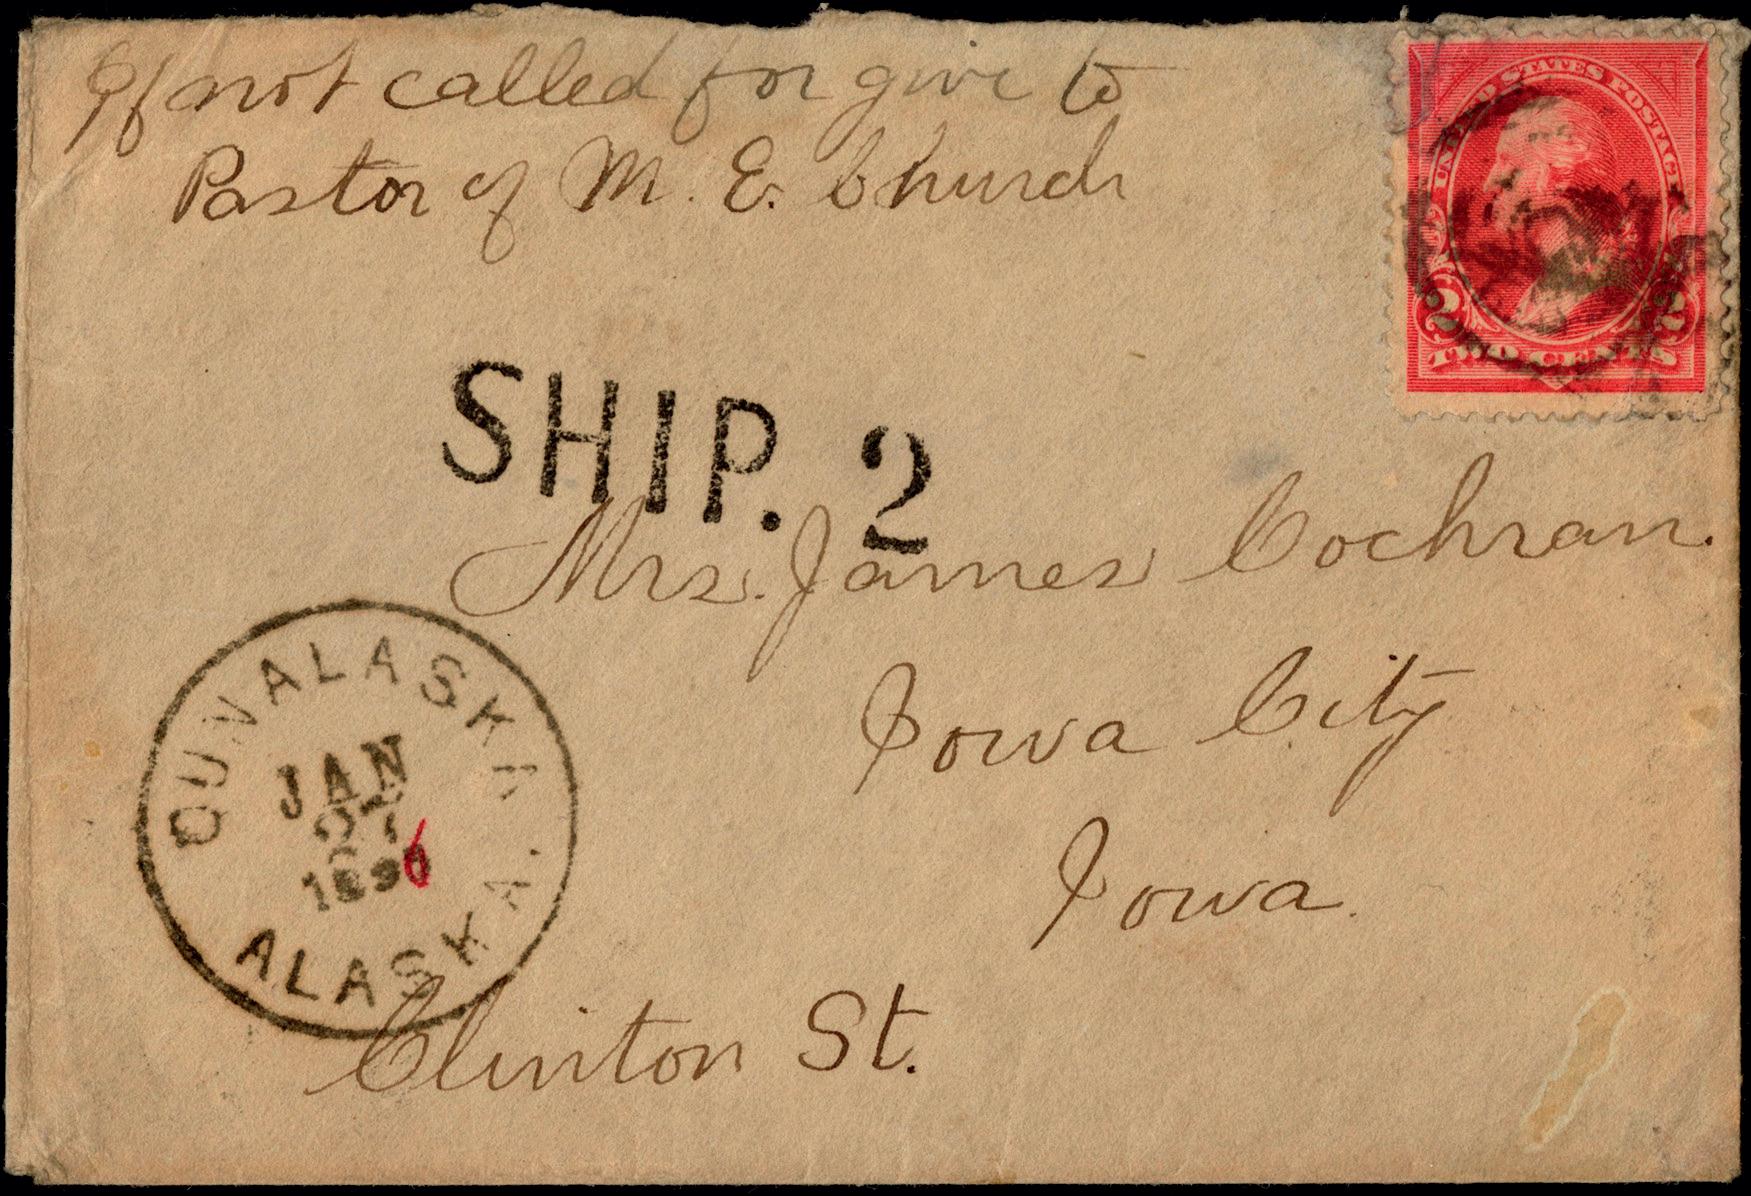 If not called for give to
Pastor of M. E. Church
UNITED STATES POSTAGE
2 2
TWO CENTS
SHIP. 2
Mrs. James Cochran.
Iowa City
Iowa.
Clinton St.
OUNALASKA.
JAN
27
1896
ALASKA